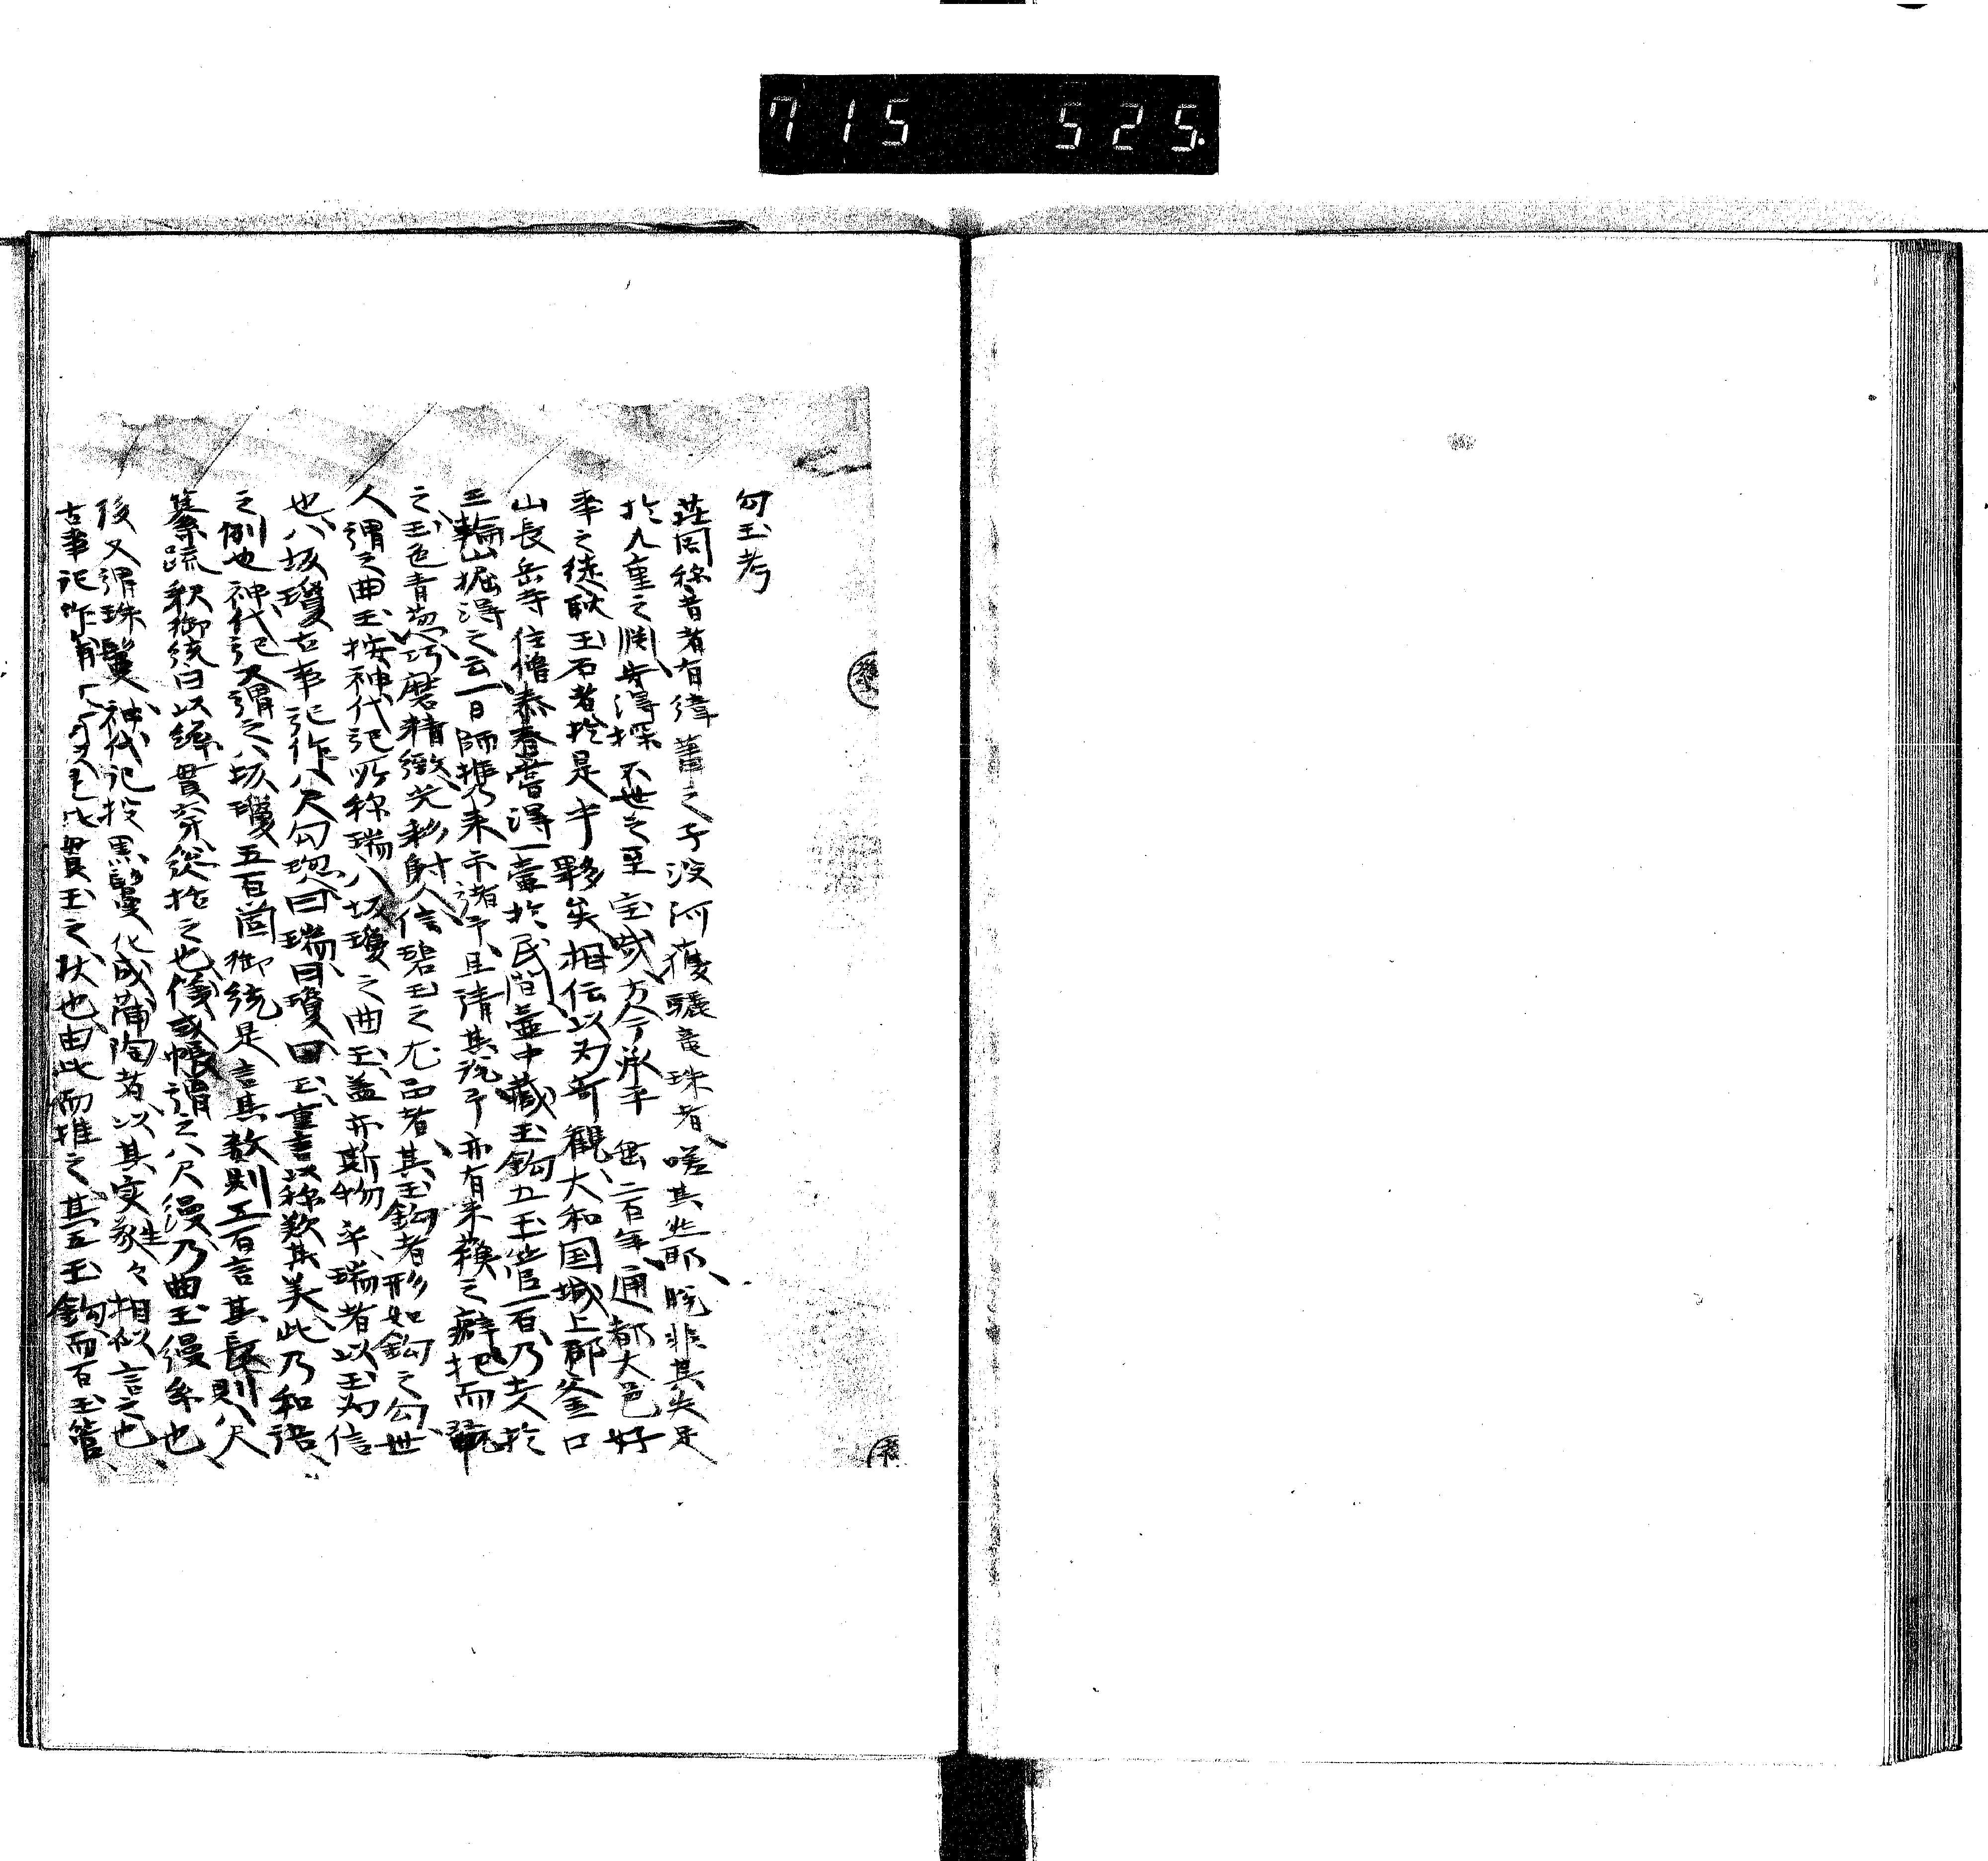 715 525
勾玉考
荘周称昔者有緯蕭之子没河獲驪竜珠者、嗟其些耶、脱非其失足
於九重之淵、安得探不世之至宝哉、方今承平二百年、通都大邑好
事之徒、耽玉石者、於是乎夥矣、相伝以為奇観、大和国城上郡釜口
山長岳寺住僧泰春嘗得一壷於民間、壷中蔵玉鈎五玉管一百、乃夫於
三輪山掘得之云、一日師携乃来示諸予、且請其説、予亦有米之癖、把而翫
之、玉色青葱、巧磨精緻、光彩射人、信碧玉之尤品者、其玉鈎者形如鈎之勾、世
人謂之曲玉、按神代記所称瑞八坂瓊之曲玉、蓋亦斯物乎、瑞者以玉為信
也、八坂瓊古事記作八尺勾璁、曰瑞曰瓊曰玉、重言以称歎其美、此乃和語
之例也、神代記又謂之八坂瓊五百箇御統、是言其数則五百言其長則八尺
纂疏釈御統曰以緒貫穿総括之也、後或帳謂之八尺縵、乃曲玉縵系也
後又謂珠鬘、神代記投黒鬘化成蒲陶者、以其実象々生相似言之也
古事記作貫玉之状也、由此而推之、其五玉鈎而百玉管、